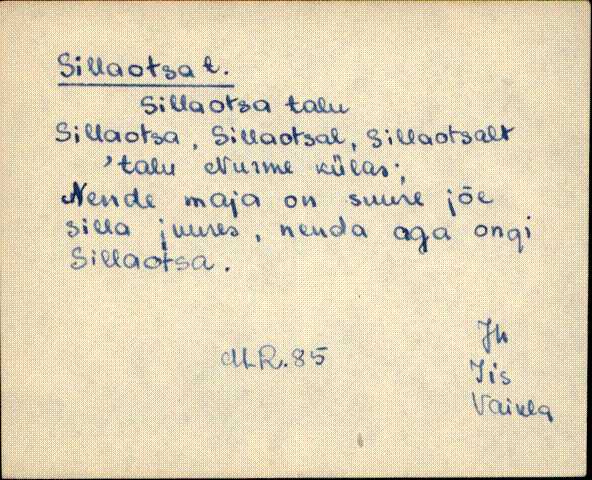 Sillaotsa t.
Sillaotsa talu
Sillaotsa, Sillaotsal, Sillaotsalt
'talu Nurme külas;
Nende maja on suure jõe
silla juures, nenda aga ongi
Sillaotsa.
MR.85
Jh
Iis
Vaikla